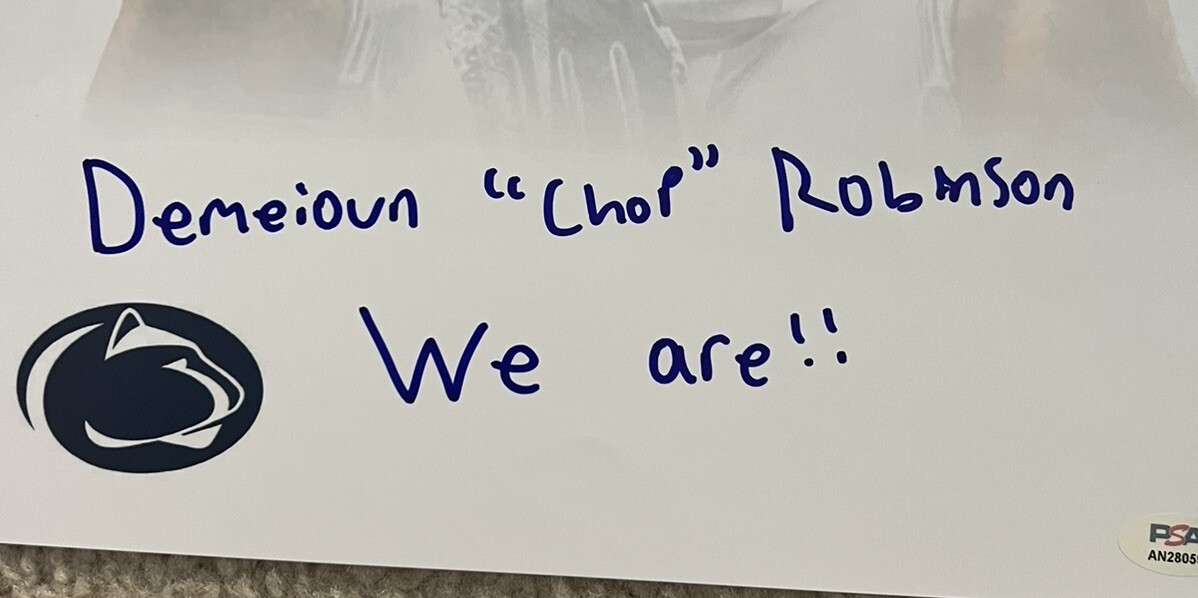 Demeioun “Chop” Robinson
We are!!
PSA
AN2805